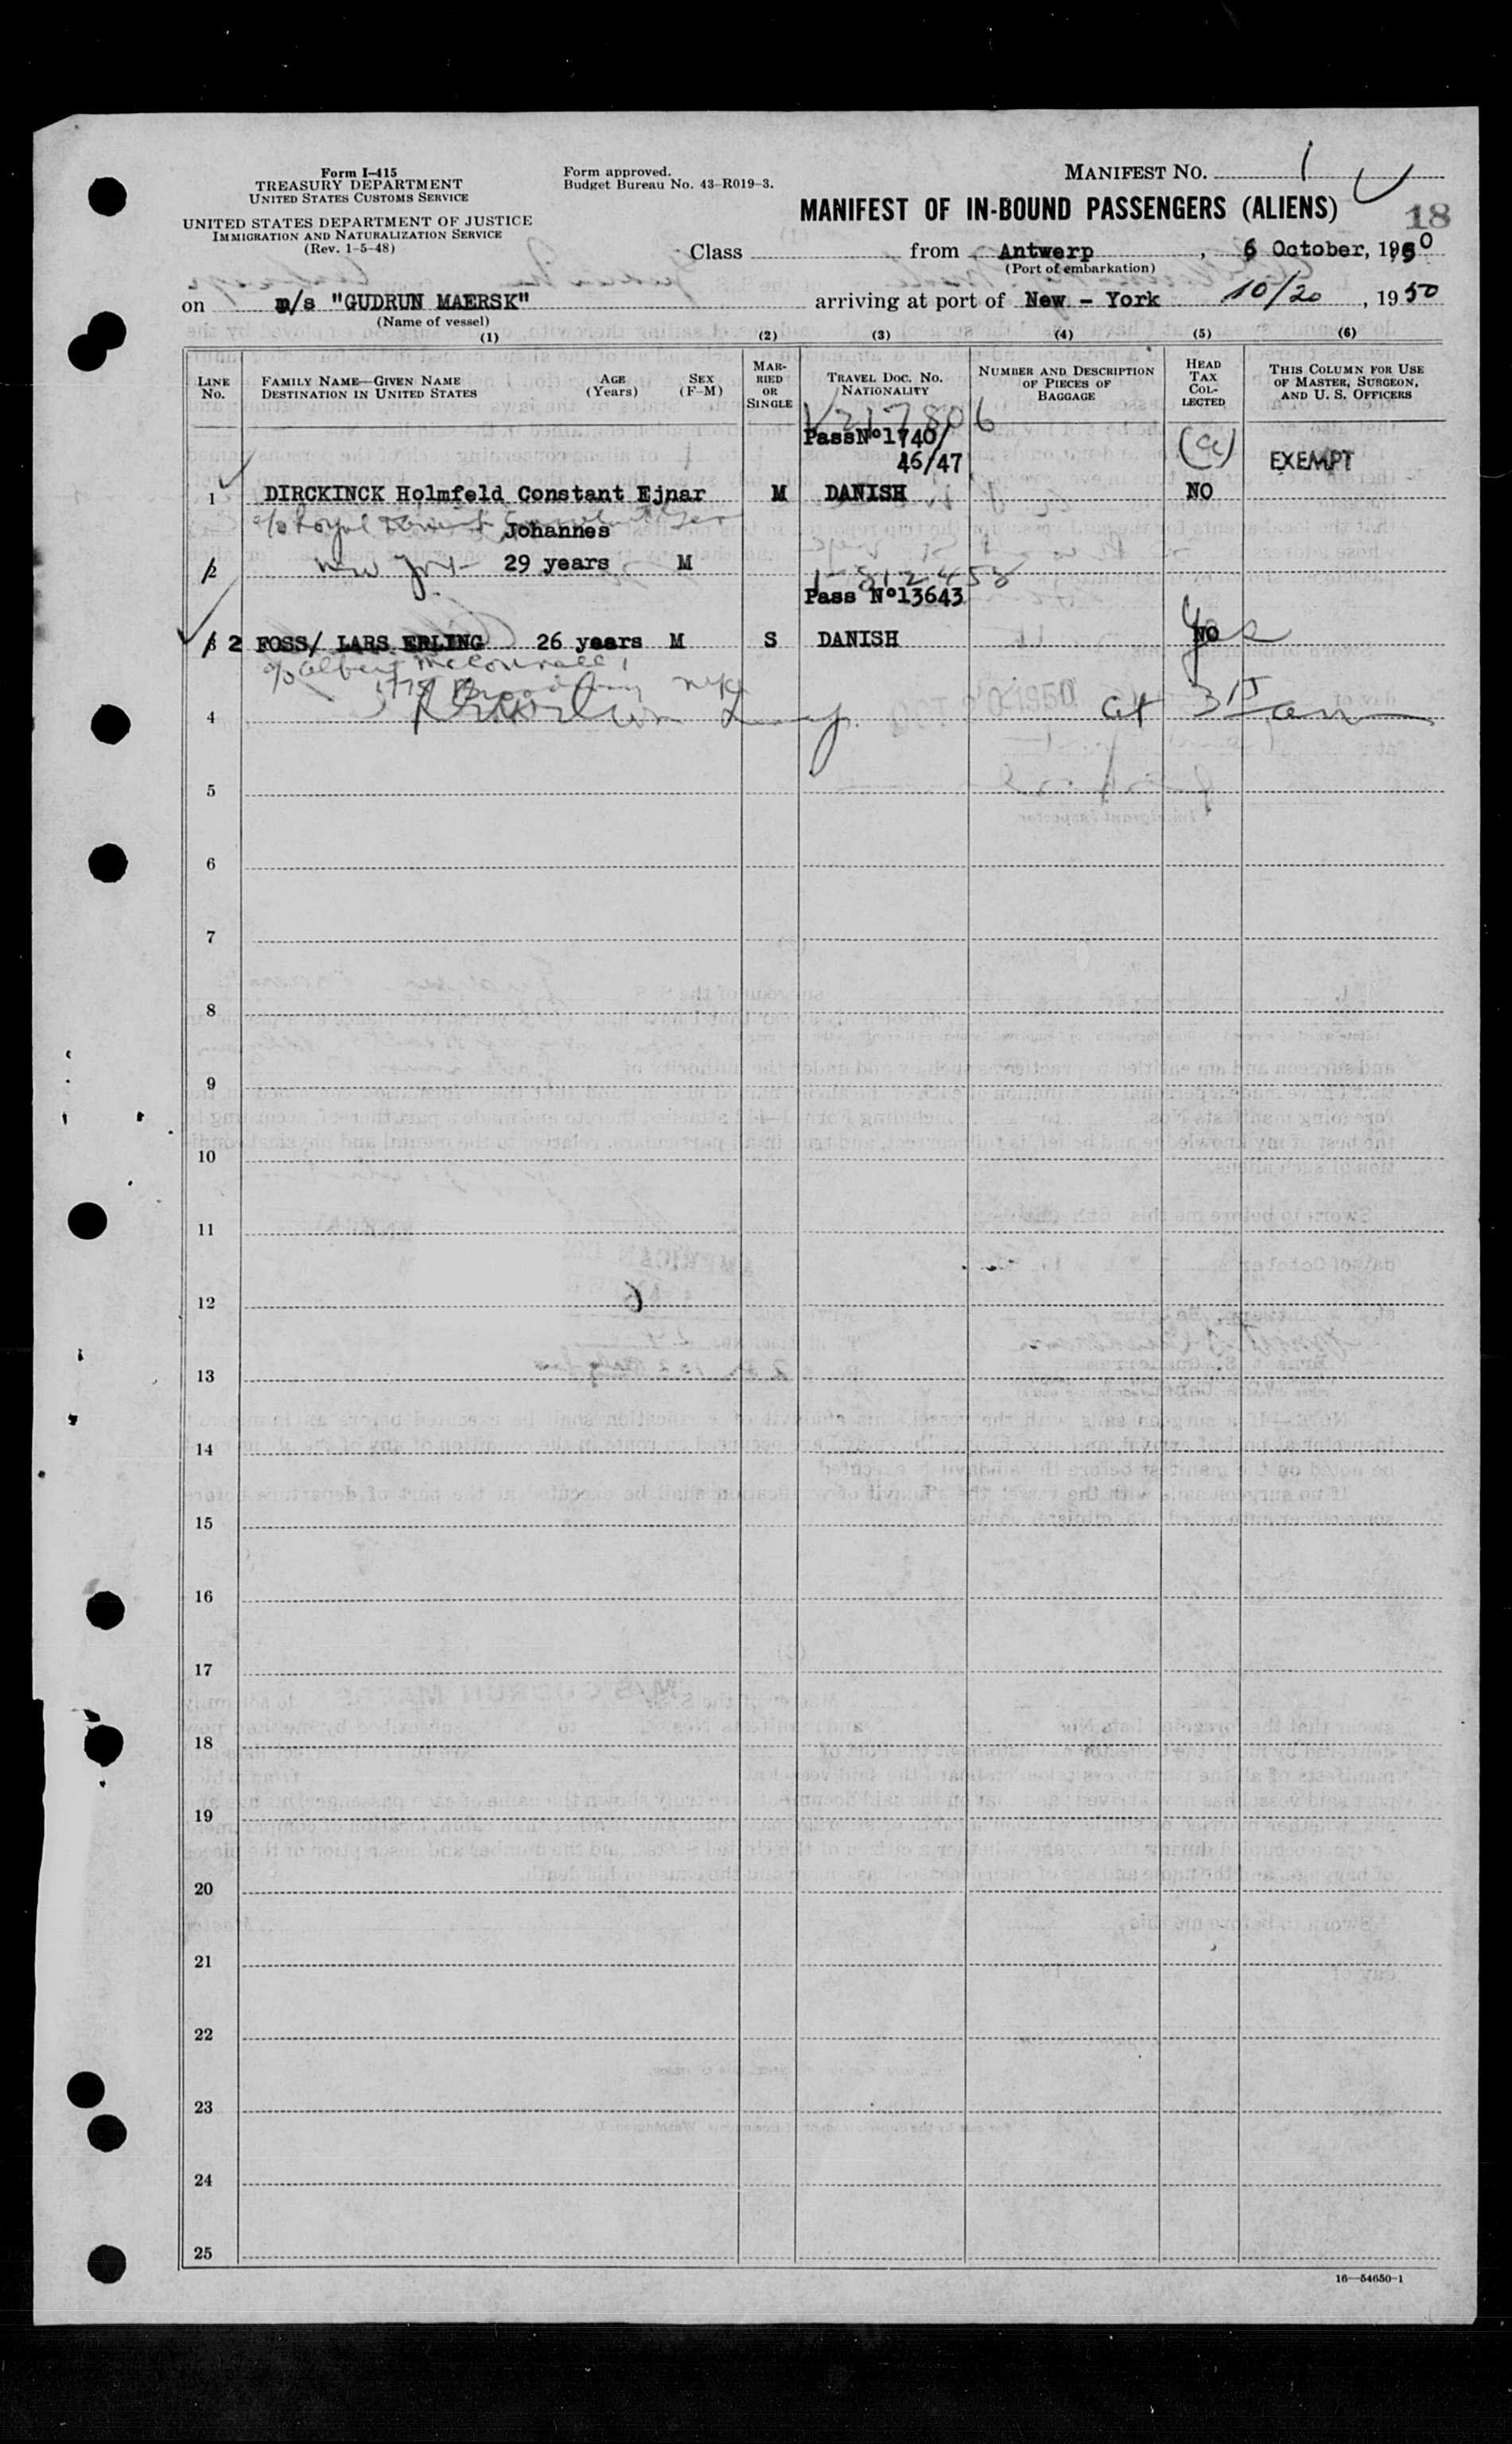 Form I-415
TREASURY DEPARTMENT
UNITED STATES CUSTOMS SERVICE
UNITED STATES DEPARTMENT OF JUSTICE
IMMIGRATION AND NATURALIZATION SERVICE
(Rev. 1-5-48)
Form approved.
Budget Bureau No. 43-R019-3.
MANIFEST NO. 1
MANIFEST OF IN-BOUND PASSENGERS (ALIENS)
18
Class from Antwerp, 6 October, 1950
(Port of embarkation)
on m/s "GUDRUN MAERSK" arriving at port of New - York 10/20, 1950
(Name of vessel)
(1) (2) (3) (4) (5) (6)
LINE No.
FAMILY NAME—GIVEN NAME
DESTINATION IN UNITED STATES
AGE (Years)
SEX (F-M)
MARRIED OR SINGLE
TRAVEL DOC. NO. NATIONALITY
NUMBER AND DESCRIPTION OF PIECES OF BAGGAGE
HEAD TAX COLLECTED
THIS COLUMN FOR USE OF MASTER, SURGEON, AND U. S. OFFICERS
PassNo1740/
46/47
EXEMPT
1 DIRCKINCK Holmfeld Constant Ejnar M DANISH NO
c/o Royal Danish
Johannes
2 New York 29 years M
Pass No13643
3 2 FOSS/ LARS ERLING 26 years M S DANISH NO Yes
c/o Albert
Broadway NYC
4
5
6
7
8
9
10
11
12
13
14
15
16
17
18
19
20
21
22
23
24
25
16—54650-1